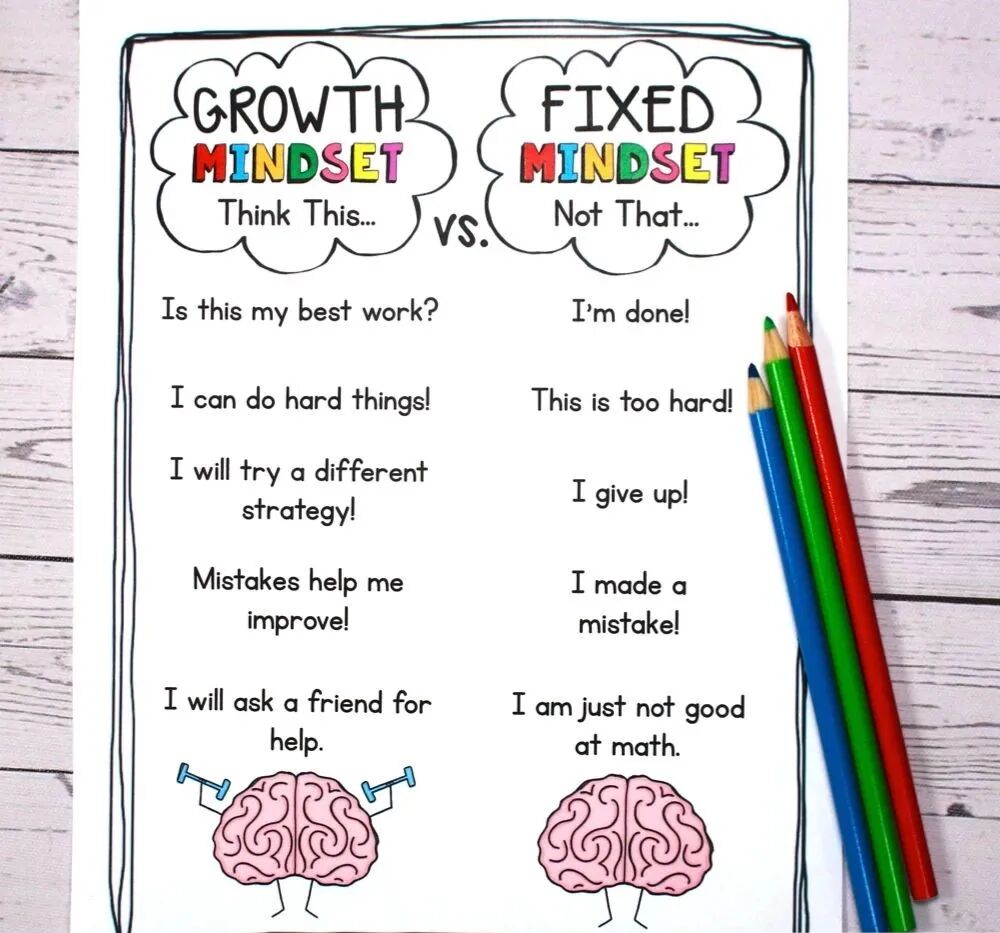 GROWTH
MINDSET
Think This...
vs.
FIXED
MINDSET
Not That...
Is this my best work?
I'm done!
I can do hard things!
This is too hard!
I will try a different
strategy!
I give up!
Mistakes help me
improve!
I made a
mistake!
I will ask a friend for
help.
I am just not good
at math.